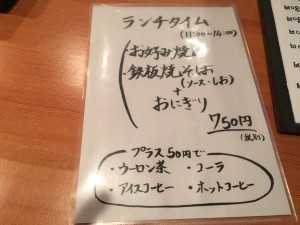 ランチタイム
(11:00〜14:00)
お好み焼き
・鉄板焼そば
(ソース・しお)
+
おにぎり
750円
(税別)
プラス50円で
・ウーロン茶 ・コーラ
・アイスコーヒー ・ホットコーヒー